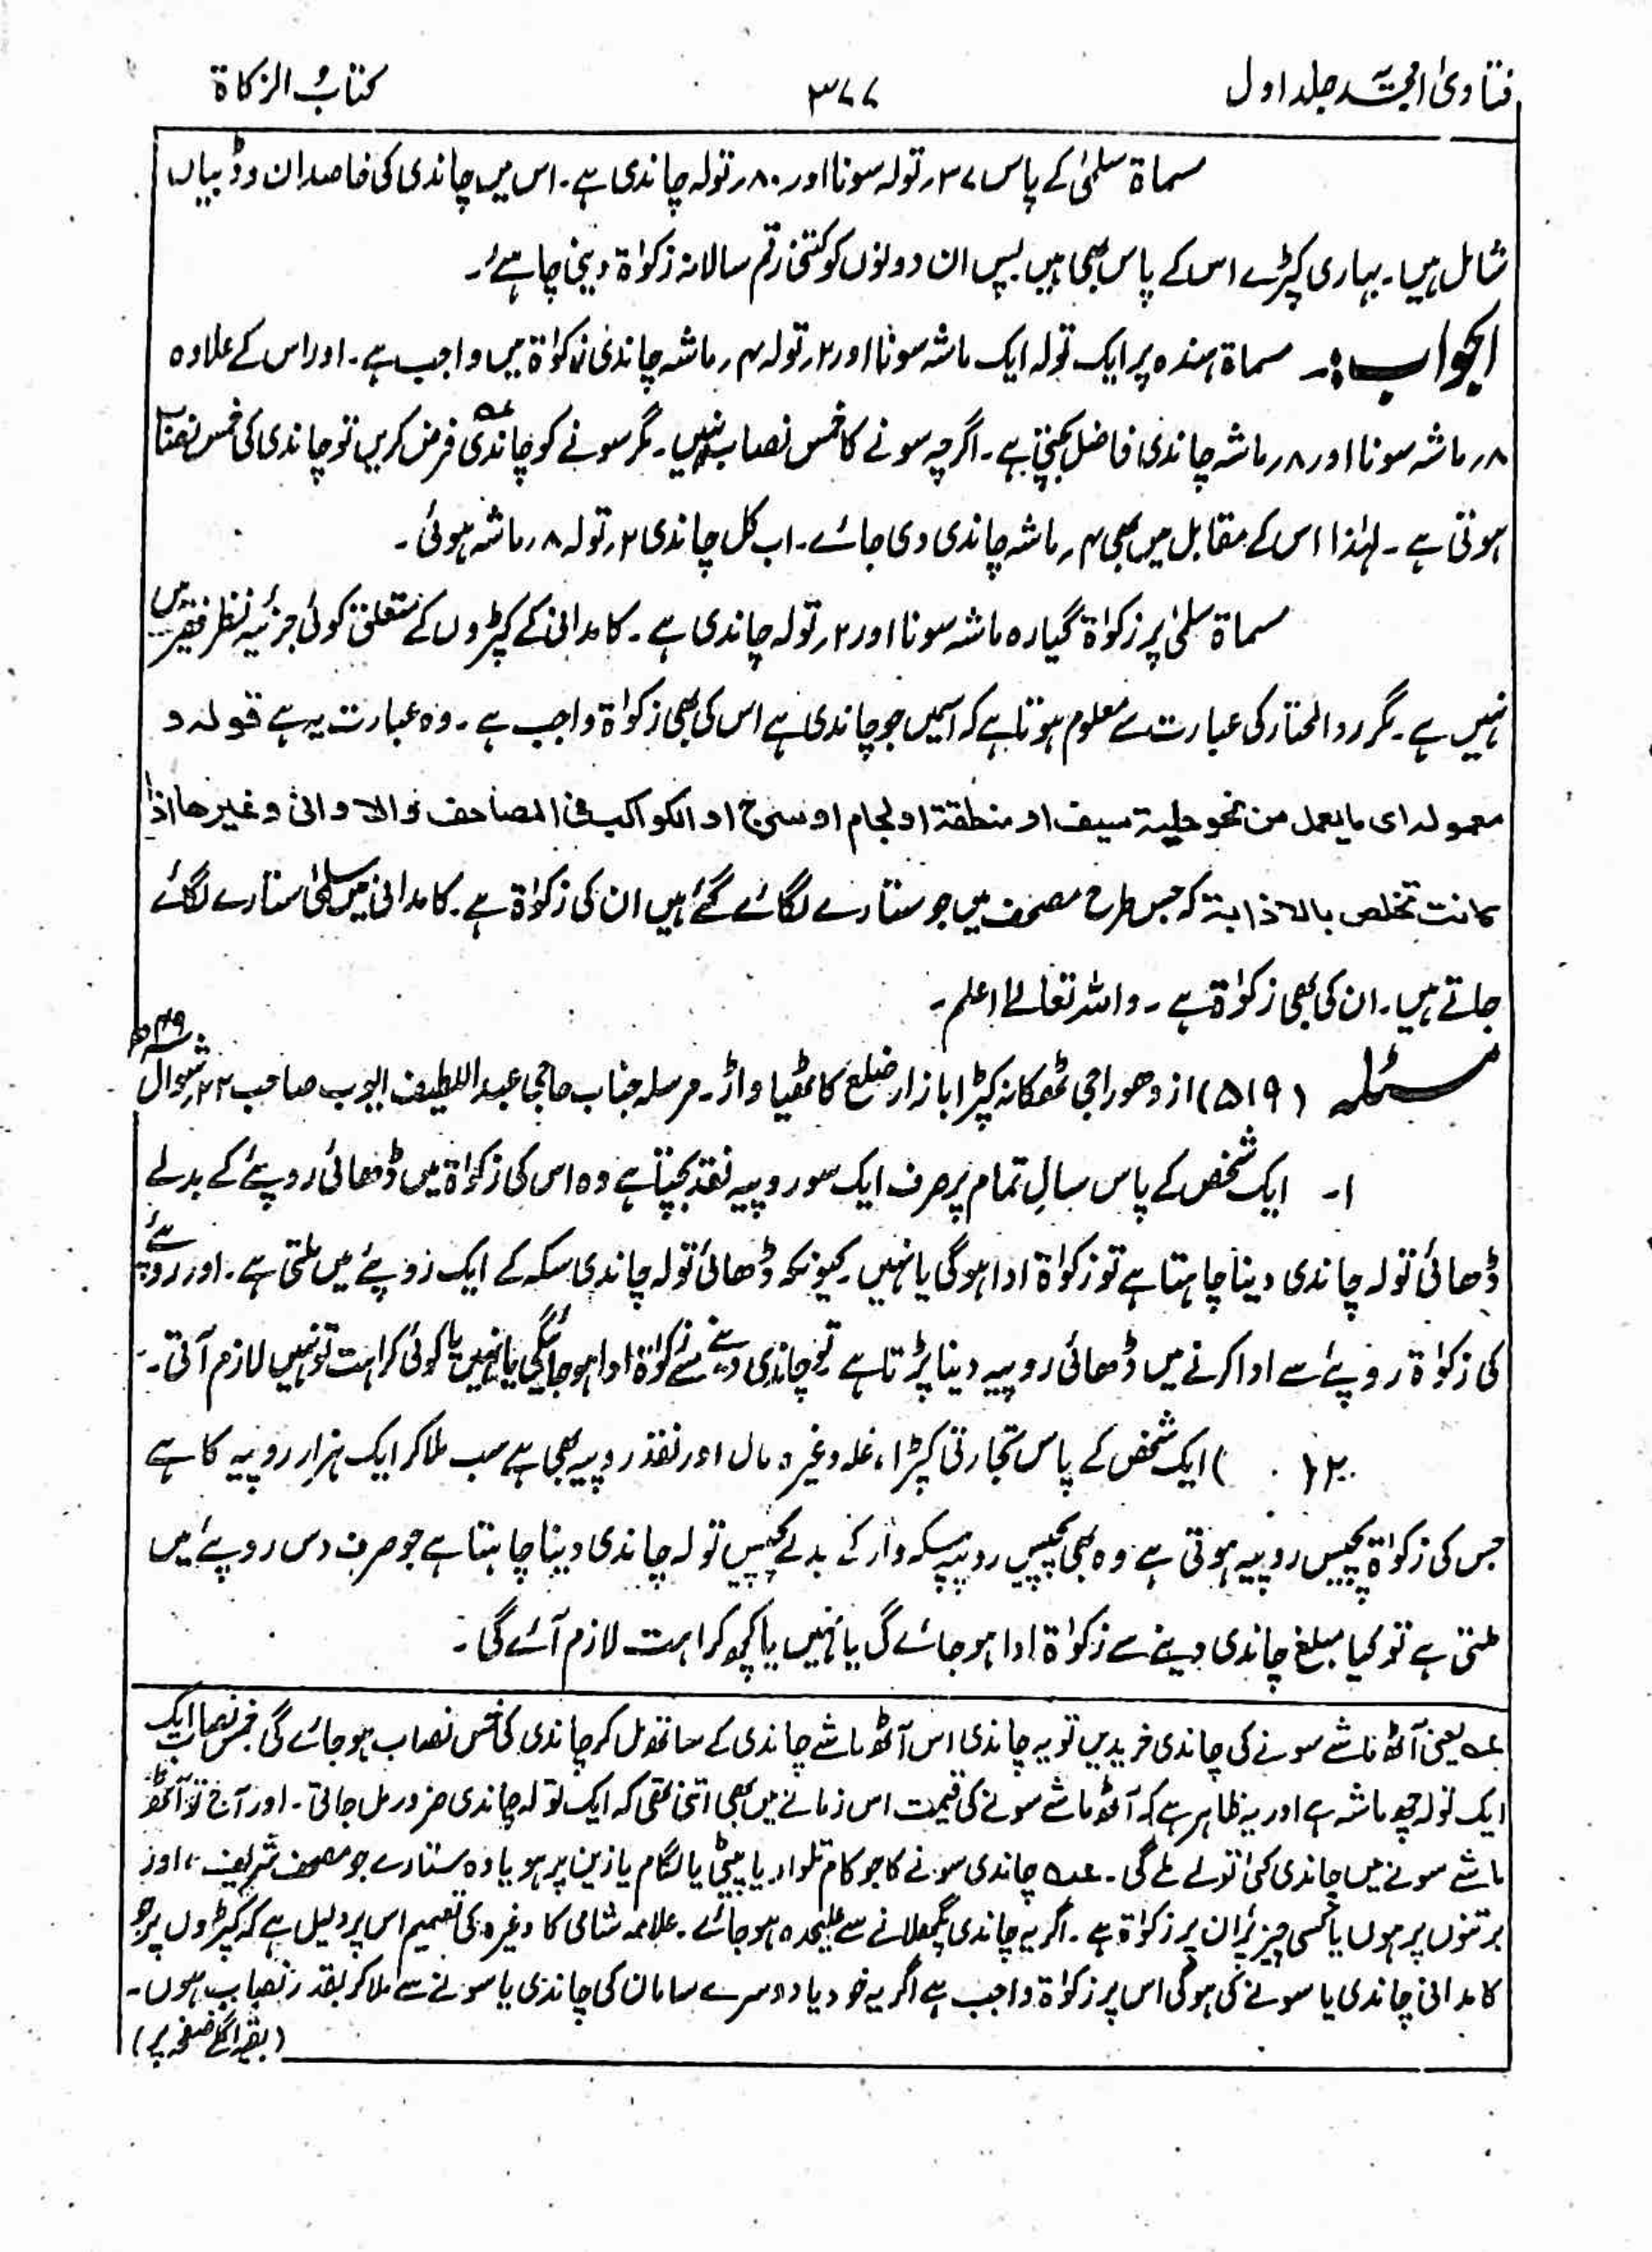 فتاویٰ امجدیہ جلد اول ۳۷۷ کتابُ الزکاة
مسماة سلمیٰ کے پاس ۳۷ر تولہ سونا اور ۸۰ر تولہ چاندی ہے۔ اس میں چاندی کی خاصدان و ڈبیاں
شامل ہیں۔ بہاری کپڑے اس کے پاس بھی ہیں بس ان دونوں کو کتنی رقم سالانہ زکوٰة دینی چاہئے۔
الجواب:۔ مسماة ہندہ پر ایک تولہ ایک ماشہ سونا اور ۲ر تولہ ۴ر ماشہ چاندی زکوٰة میں واجب ہے۔ اور اس کے علاوہ
۸ر ماشہ سونا اور ۸ر ماشہ چاندی فاضل بچتی ہے۔ اگرچہ سونے کا خمس نصاب نہیں۔ مگر سونے کو چاندی عہ فرض کریں تو چاندی کی خمس نصاب
ہوتی ہے۔ لہٰذا اس کے مقابل میں بھی ۴ر ماشہ چاندی دی جائے۔ اب کل چاندی ۲ر تولہ ۸ر ماشہ ہوئی۔
مسماة سلمیٰ پر زکوٰة گیارہ ماشہ سونا اور ۲ر تولہ چاندی ہے۔ کامدانی کے کپڑوں کے متعلق کوئی جزئیہ نظر فقیر میں
نہیں ہے۔ مگر ردالمحتار کی عبارت سے معلوم ہوتا ہے کہ اسمیں جو چاندی ہے اس کی بھی زکوٰة واجب ہے۔ وہ عبارت یہ ہے قولہ و
معمولہ ای ما یعمل من نحو حلیة سیف او منطقة او لجام او سرج او الکواکب فی المصاحف والاوانی وغیرھا اذا
کانت تخلص بالاذابة کہ جس طرح مصحف میں جو ستارے لگائے گئے ہیں ان کی زکوٰة ہے۔ کامدانی میں سلمیٰ ستارے لگائے
جاتے ہیں۔ ان کی بھی زکوٰة ہے۔ واللہ تعالےٰ اعلم۔
مسئلہ (۵۱۹) از دھوراجی ٹھکانہ کپڑا بازار ضلع کاٹھیاواڑ۔ مرسلہ جناب حاجی عبد اللطیف ایوب صاحب ۲۲ر شوال ۴۹ھ
۱۔ ایک شخص کے پاس سالِ تمام پر صرف ایک سو روپیہ نقد بچتا ہے وہ اس کی زکوٰة میں ڈھائی روپئے کے بدلے
ڈھائی تولہ چاندی دینا چاہتا ہے تو زکوٰة ادا ہوگی یا نہیں۔ کیونکہ ڈھائی تولہ چاندی سکہ کے ایک روپئے میں ملتی ہے۔ اور روپئے
کی زکوٰة روپئے سے ادا کرنے میں ڈھائی روپیہ دینا پڑتا ہے تو چاندی دینے سے زکوٰة ادا ہو جائیگی یا نہیں یا کوئی کراہت تو نہیں لازم آتی۔
۲( ) ایک شخص کے پاس تجارتی کپڑا، غلہ وغیرہ مال اور نقد روپیہ بھی ہے سب ملاکر ایک ہزار روپیہ کا ہے
جس کی زکوٰة پچیس روپیہ ہوتی ہے وہ بھی پچیس روپیہ سکہ دار کے بدلے پچیس تولہ چاندی دینا چاہتا ہے جو صرف دس روپئے میں
ملتی ہے تو کیا مبلغ چاندی دینے سے زکوٰة ادا ہو جائے گی یا نہیں یا کچھ کراہت لازم آئے گی۔
عہ یعنی آٹھ ماشے سونے کی چاندی خریدیں تو یہ چاندی اس آٹھ ماشے چاندی کے ساتھ مل کر چاندی کی خمس نصاب ہو جائے گی خمس نصاب ایک
ایک تولہ چھ ماشہ ہے اور یہ ظاہر ہے کہ آٹھ ماشے سونے کی قیمت اس زمانے میں بھی اتنی تھی کہ ایک تولہ چاندی ضرور مل جاتی۔ اور آج تو آٹھ
ماشے سونے میں چاندی کئی تولے ملے گی۔ عہ چاندی سونے کا جو کام تلوار یا پیٹی یا لگام یا زین پر ہو یا وہ ستارے جو مصحف شریف، اور
برتنوں پر ہوں یا کسی چیز پر ان پر زکوٰة ہے۔ اگر یہ چاندی پگھلانے سے علیحدہ ہو جائے۔ علامہ شامی کا وغیرہ کی تعمیم اس پر دلیل ہے کہ کپڑوں پر جو
کامدانی چاندی یا سونے کی ہوگی اس پر زکوٰة واجب ہے اگر یہ خود یا دوسرے سامان کی چاندی یا سونے سے ملاکر بقدر نصاب ہوں۔
(بقیہ اگلے صفحہ پر)